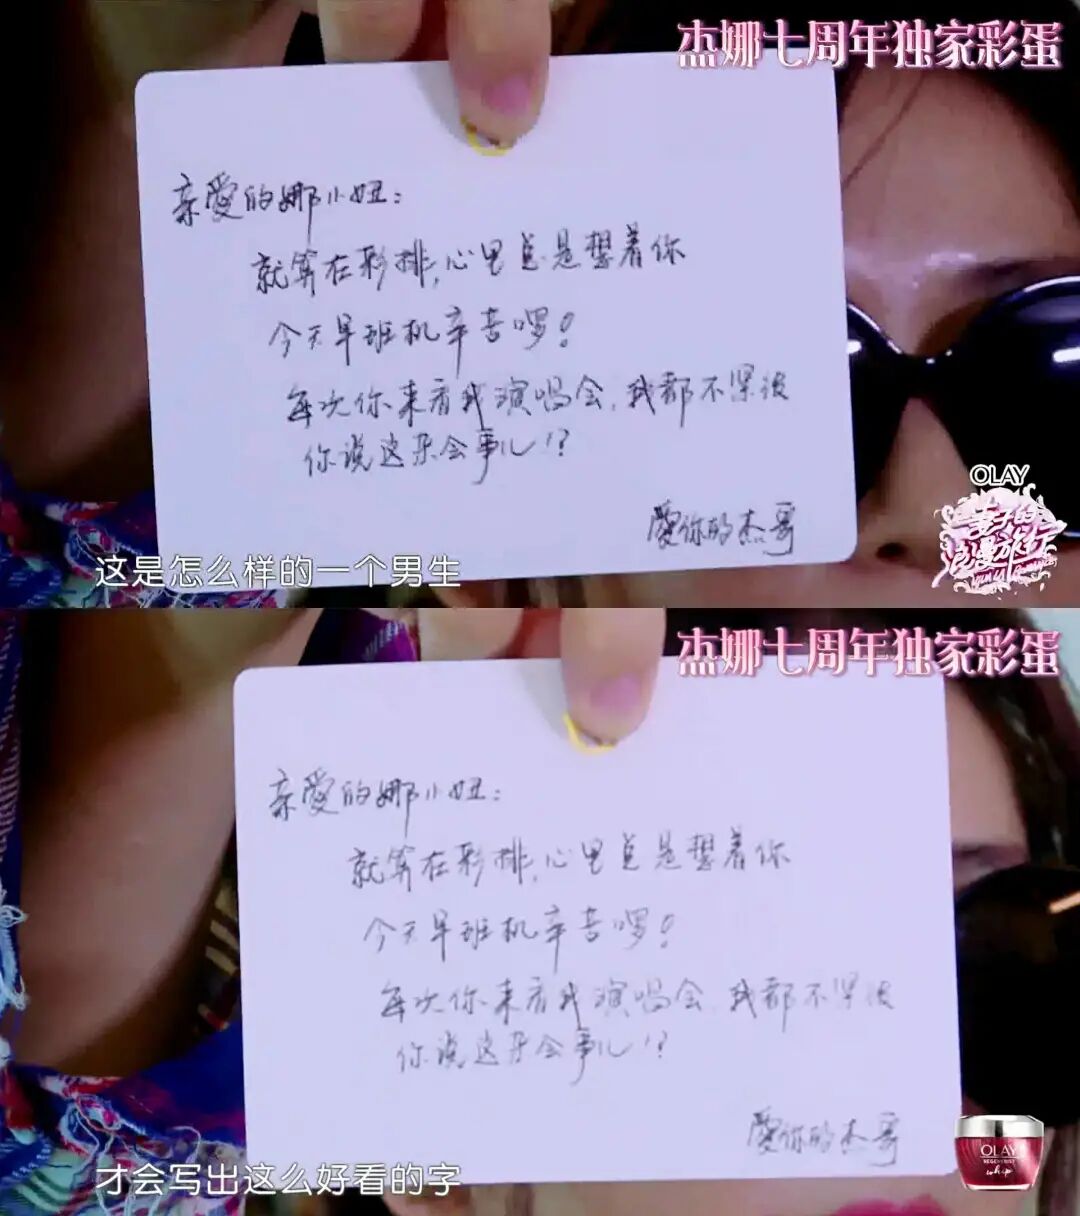 杰娜七周年独家彩蛋
亲愛的娜小妞：
就算在彩排，心里总是想着你
今天早班机辛苦啰！
每次你来看我演唱会，我都不紧张
你说这朵会事儿！？
愛你的杰哥
OLAY
妻子的
浪漫旅行
这是怎么样的一个男生
杰娜七周年独家彩蛋
亲愛的娜小妞：
就算在彩排，心里总是想着你
今天早班机辛苦啰！
每次你来看我演唱会，我都不紧张
你说这朵会事儿！？
愛你的杰哥
OLAY
REGENERIST
whip
才会写出这么好看的字